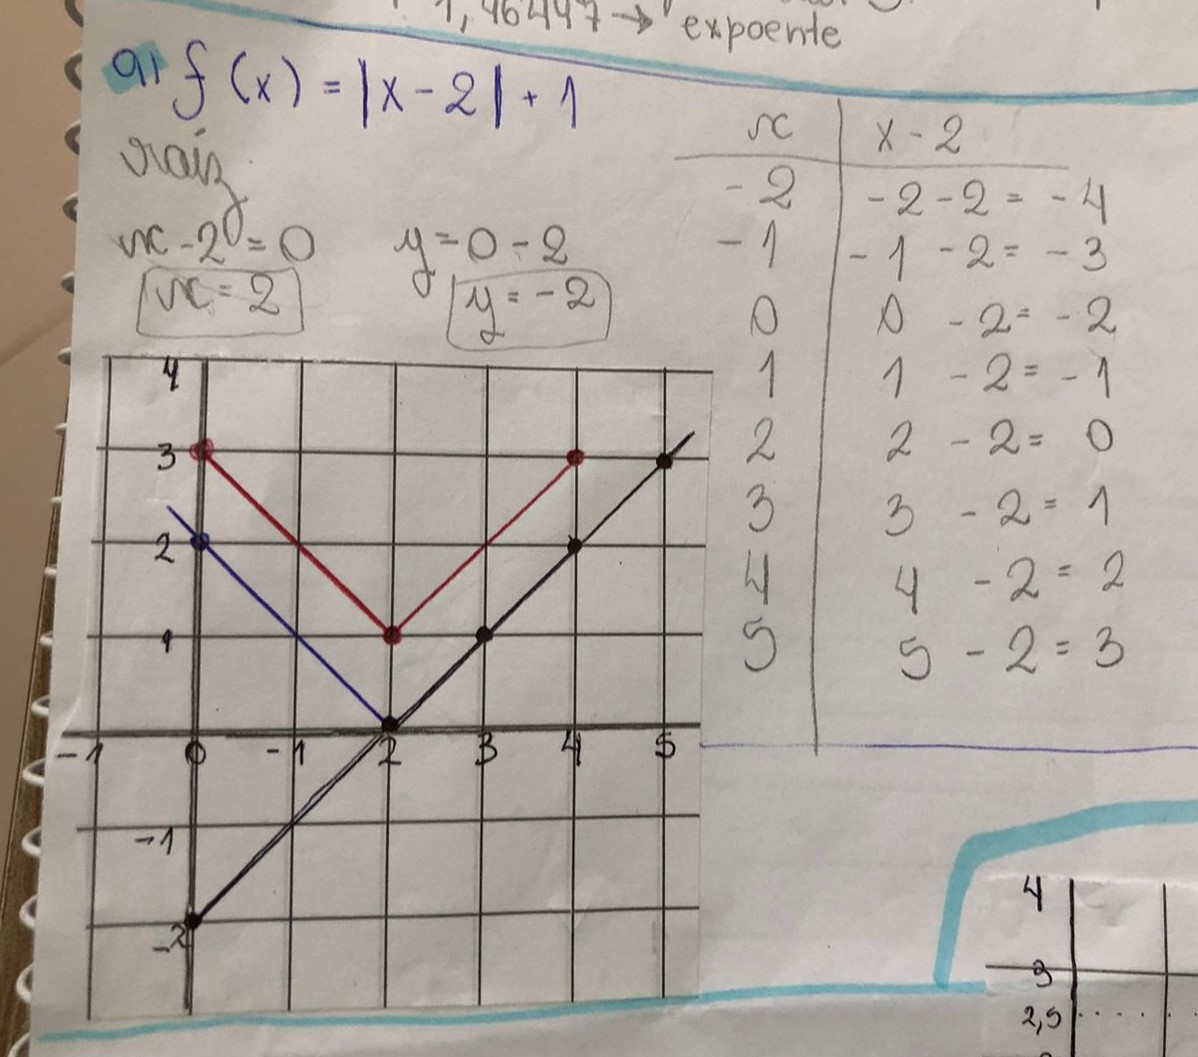 1,46447 → expoente
a) f(x) = |x-2| + 1
raiz
x-2=0
x=2
y=0-2
y=-2
x | x-2
-2 | -2-2= -4
-1 | -1 -2= -3
0 | 0 -2= -2
1 | 1 -2= -1
2 | 2 -2= 0
3 | 3 -2= 1
4 | 4 -2= 2
5 | 5 -2= 3
4
3
2
1
-1 0 -1 2 3 4 5
-1
-2
4
3
2,5